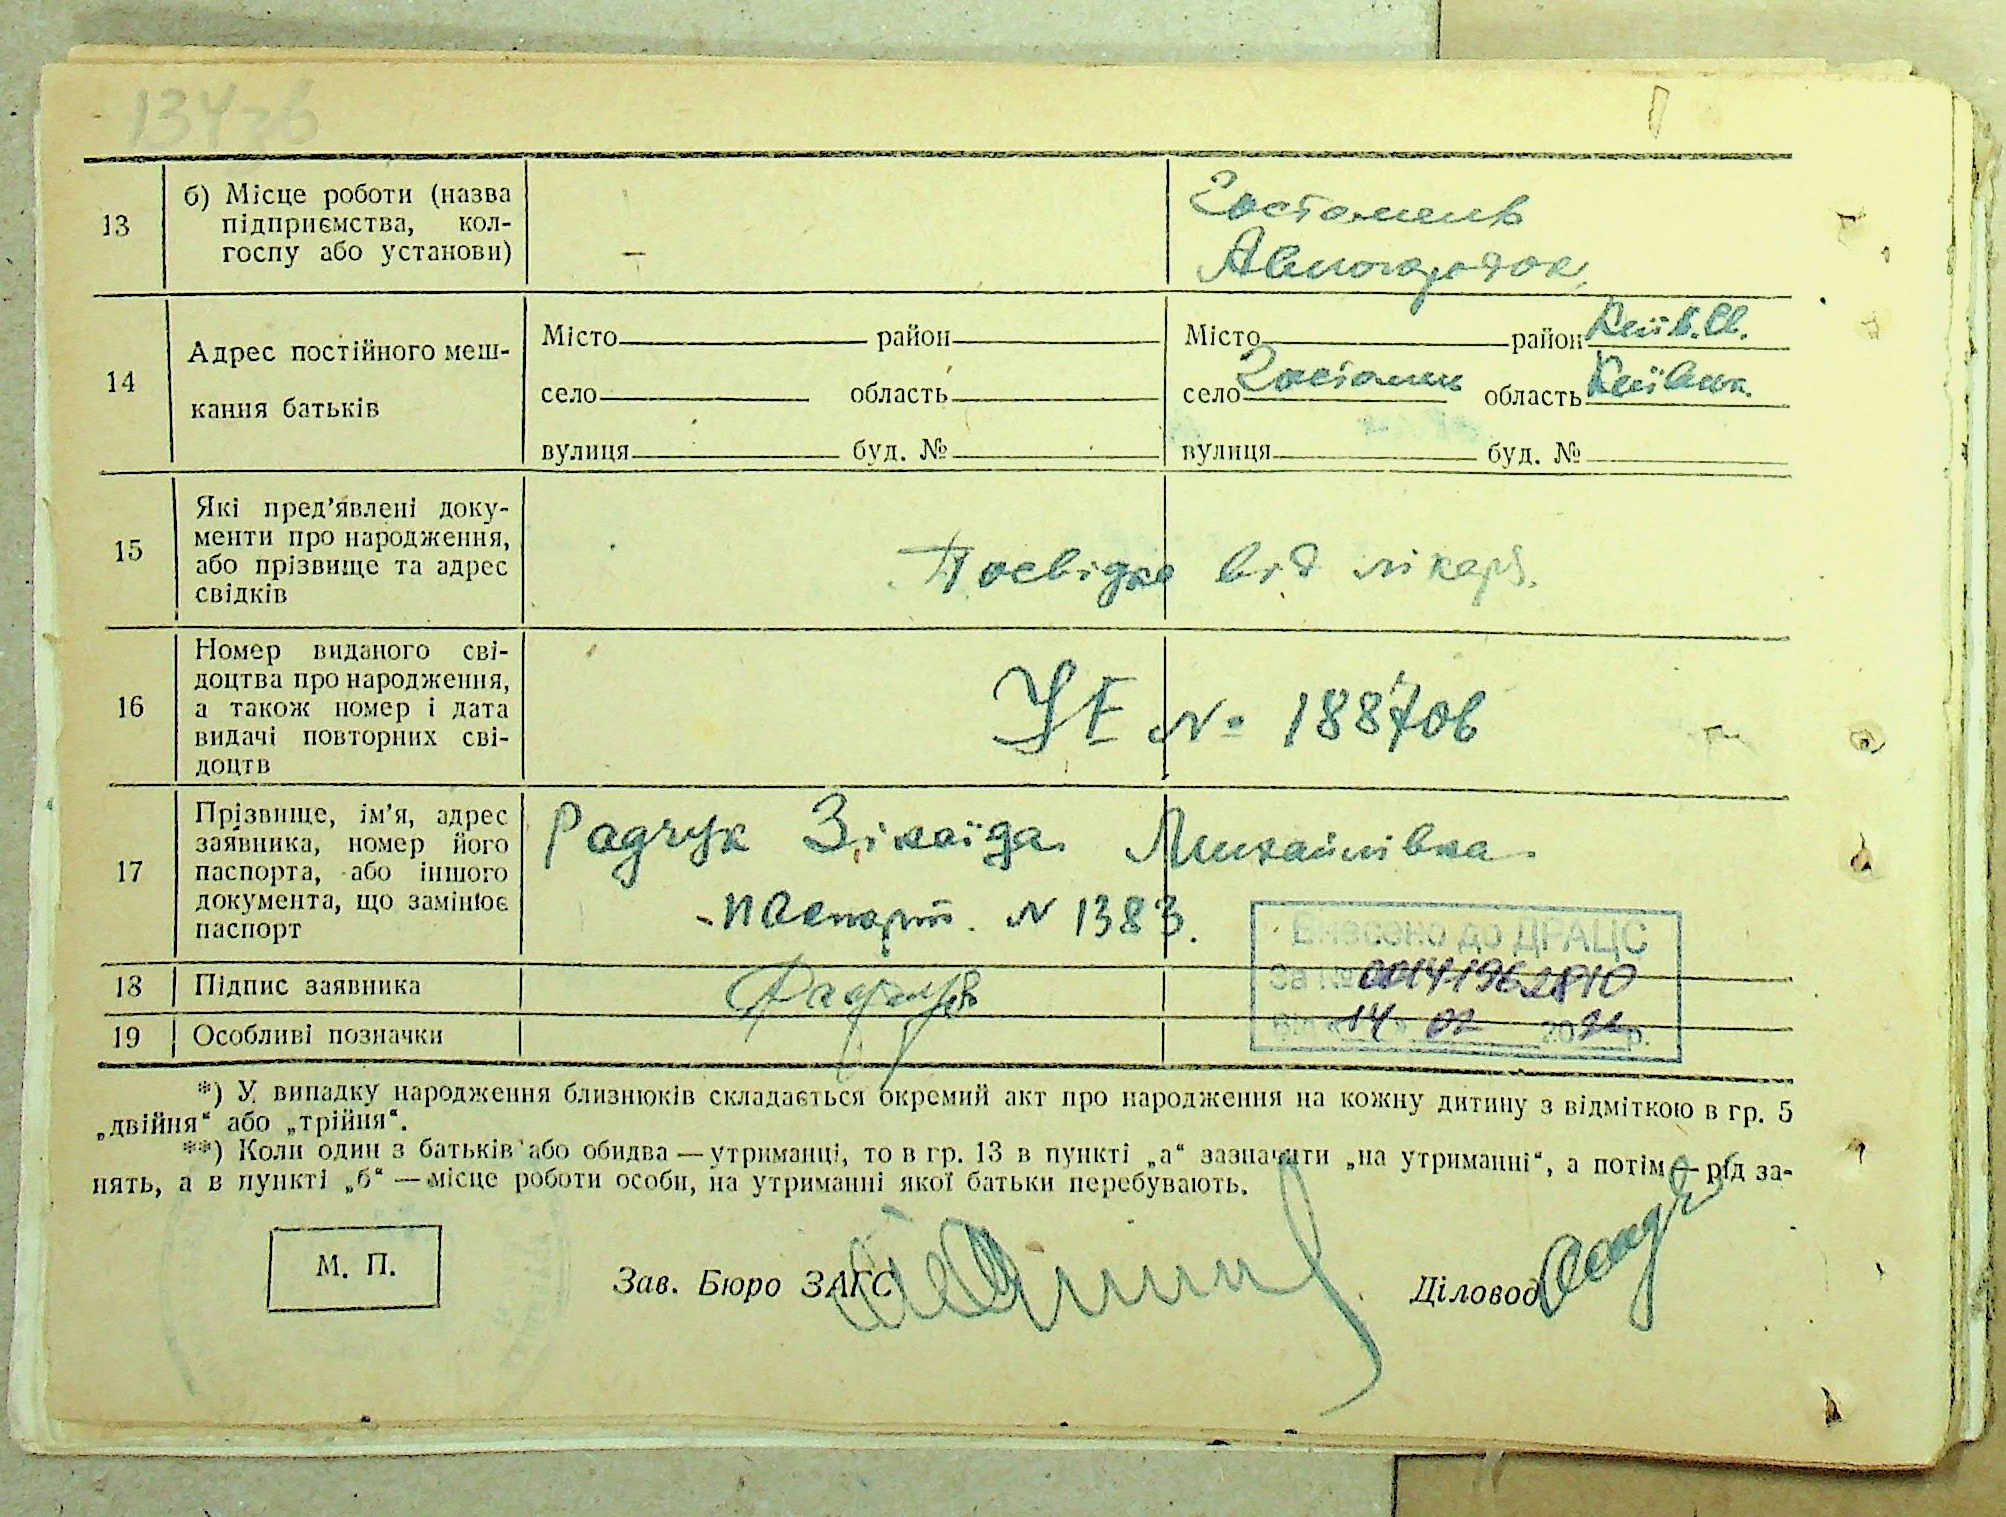 134зв
13
б) Місце роботи (назва
підприємства, кол-
госпу або установи)
–
Гостомель
Автогородок
14
Адрес постійного меш-
кання батьків
Місто район
село область
вулиця буд. №
Місто район Київ. Св.
село Гостомель область Київськ.
вулиця буд. №
15
Які пред'явлені доку-
менти про народження,
або прізвище та адрес
свідків
Посвідка від лікаря.
16
Номер виданого сві-
доцтва про народження,
а також номер і дата
видачі повторних сві-
доцтв
УЕ № 188706
17
Прізвище, ім'я, адрес
заявника, номер його
паспорта, або іншого
документа, що замінює
паспорт
Радчук Зінаїда Михайлівна
паспорт. N 1383.
18
Підпис заявника
19
Особливі позначки
Внесено до ДРАЦС
За № 00141962810
Від « 14 » 02 2021 р.
*) У випадку народження близнюків складається окремий акт про народження на кожну дитину з відміткою в гр. 5
„двійня“ або „трійня“.
**) Коли один з батьків або обидва — утриманці, то в гр. 13 в пункті „а“ зазначити „на утриманні“, а потім — рід за-
нять, а в пункті „б“ — місце роботи особи, на утриманні якої батьки перебувають.
М. П.
Зав. Бюро ЗАГС
Діловод